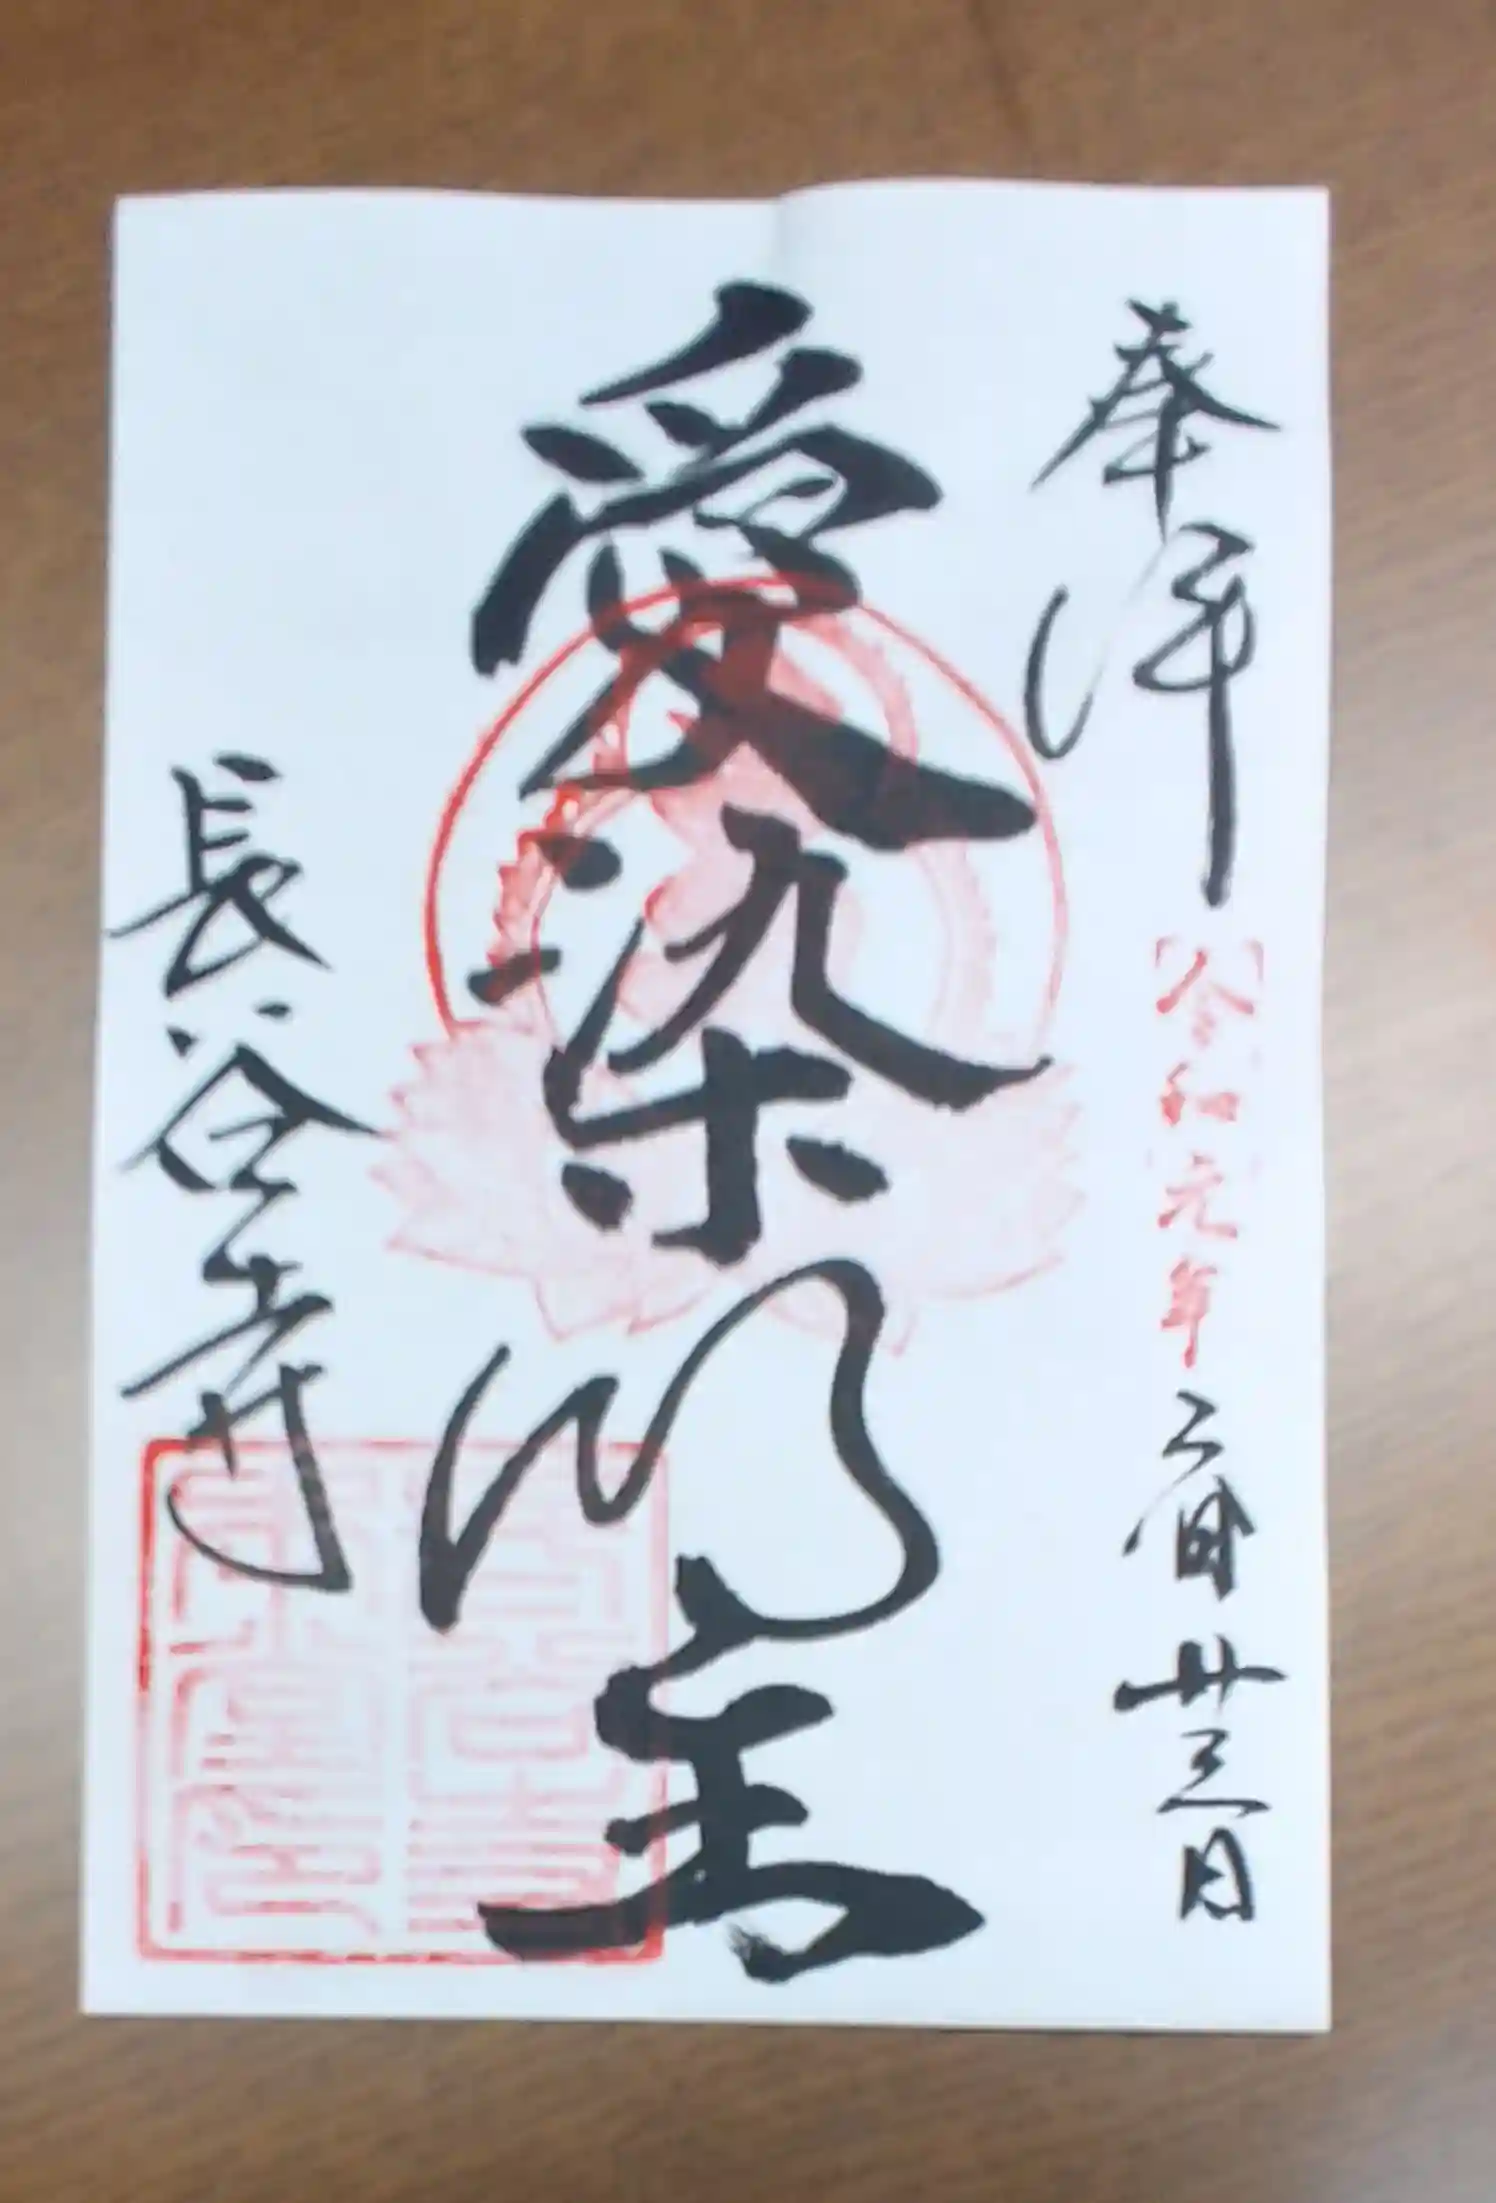 奉拝 令和元年 月廿三日
愛染明王
長谷寺